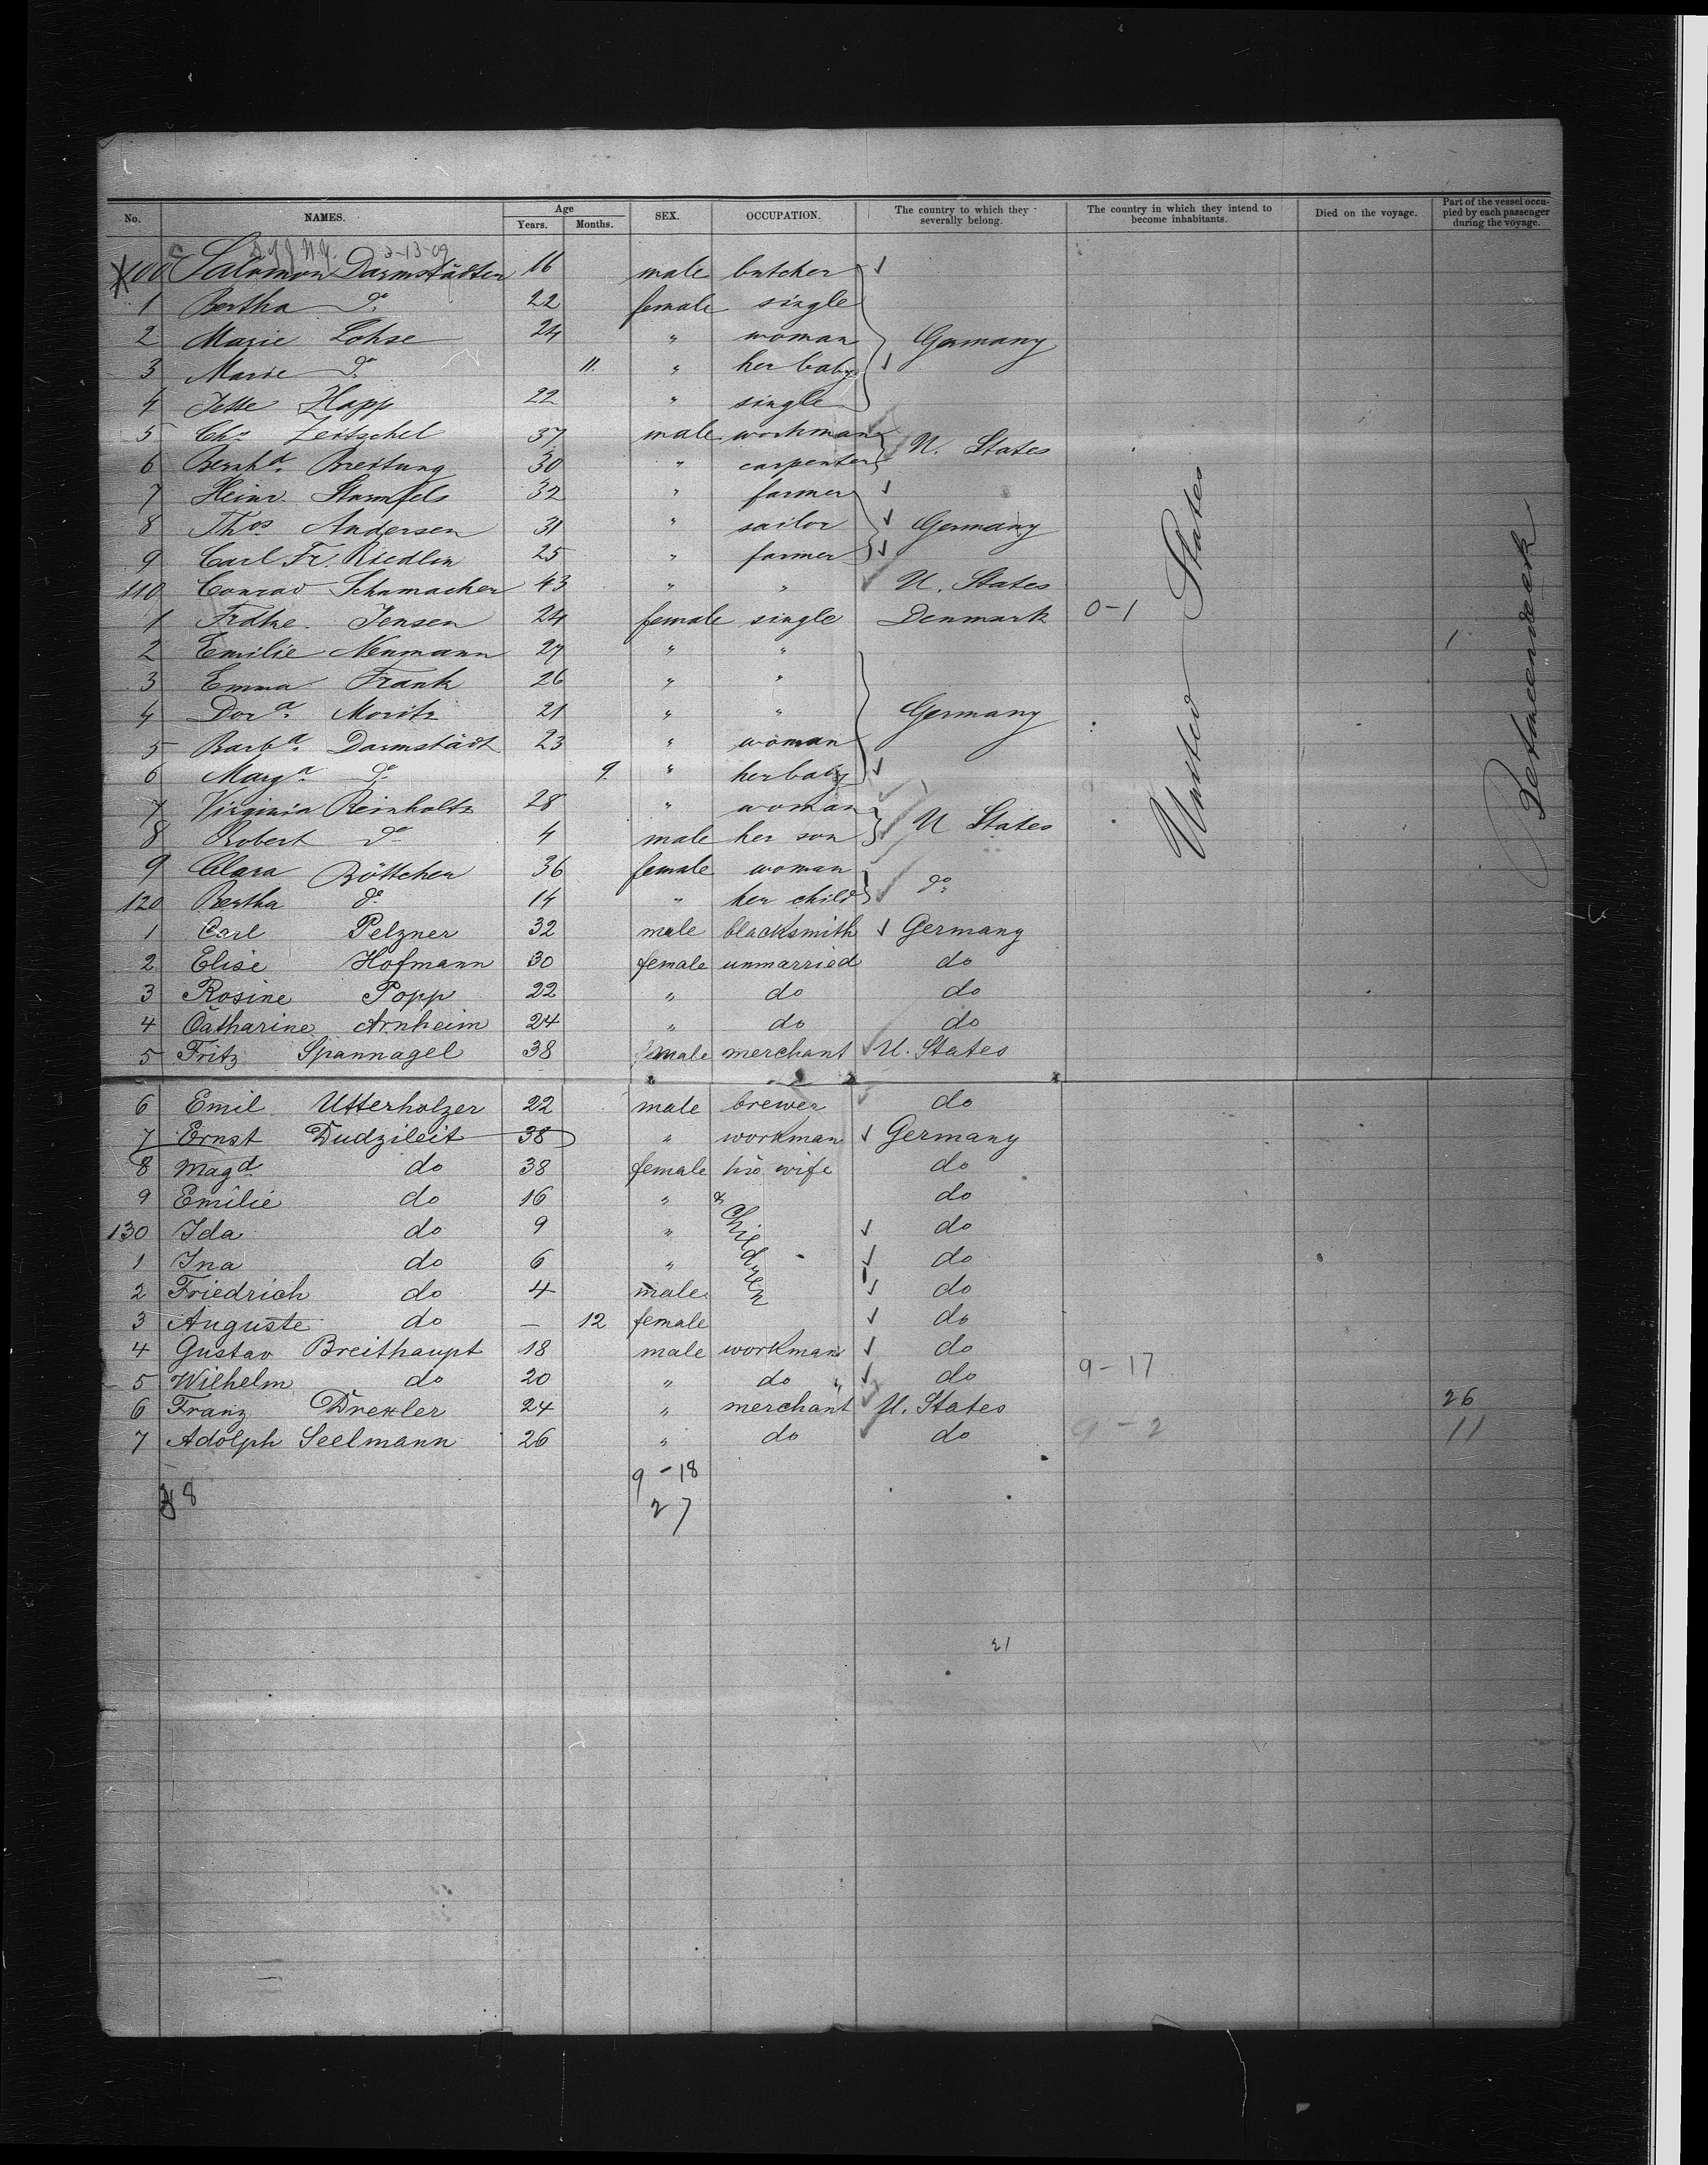 No. NAMES. Age Years. Months. SEX. OCCUPATION. The country to which they severally belong. The country in which they intend to become inhabitants. Died on the voyage. Part of the vessel occupied by each passenger during the voyage.
3-13-09
100 Salomon Darmstädter 16 male butcher
1 Bertha do 22 female single
2 Marie Lohse 24 " woman Germany
3 Marie do 11. " her baby
4 Jette Happ 22 " single
5 Chs. Zeitschel 37 male workman U. States
6 Bernhd. Breitung 30 " carpenter
7 Heinr. Sturmfels 32 " farmer
8 Thos. Andersen 31 " sailor Germany
9 Carl Fr. Riedlin 25 " farmer
110 Conrad Schumacher 43 " " U. States
1 Frdke. Jensen 24 female single Denmark 0-1
2 Emilie Neumann 27 " " 1
3 Emma Frank 26 " "
4 Dora. Moritz 21 " " Germany
5 Barba. Darmstädt 23 " woman
6 Marga. do 9. " her baby
7 Virginia Reinholtz 28 " woman U States
8 Robert do 4 male her son
9 Clara Böttcher 36 female woman do
120 Bertha do 14 " her child
United States
1 Carl Pelzner 32 male blacksmith Germany
2 Elise Hofmann 30 female unmarried do
3 Rosine Popp 22 " do do
4 Catharine Arnheim 24 " do do
5 Fritz Spannagel 38 male merchant U. States
6 Emil Utterholzer 22 male brewer do
7 Ernst Dudzileit 38 " workman Germany
8 Magd do 38 female his wife do
9 Emilie do 16 " & children do
130 Ida do 9 " do
1 Ina do 6 " do
2 Friedrich do 4 male do
3 Auguste do — 12 female do
4 Gustav Breithaupt 18 male workman do
5 Wilhelm do 20 " do do 9-17
6 Franz Drexler 24 " merchant U. States 26
7 Adolph Seelmann 26 " do do 9-2 11
9-18
8
27